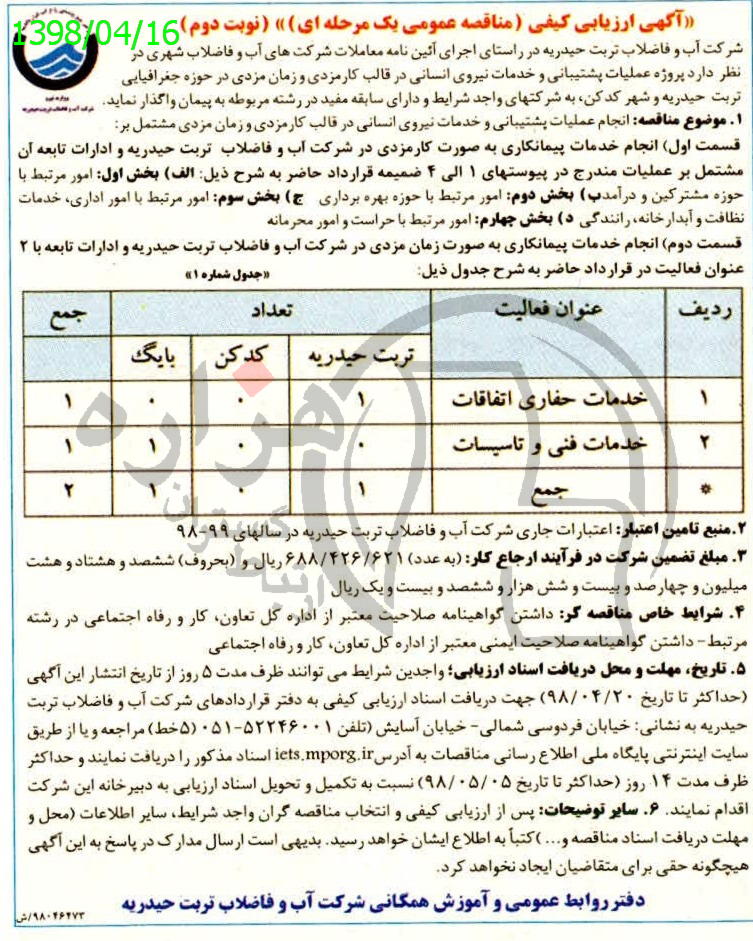 1398/04/16
«آگهی ارزیابی کیفی (مناقصه عمومی یک مرحله ای)» (نوبت دوم)
شرکت آب و فاضلاب تربت حیدریه در راستای اجرای آئین نامه معاملات شرکت های آب و فاضلاب شهری در
نظر دارد پروژه عملیات پشتیبانی و خدمات نیروی انسانی در قالب کارمزدی و زمان مزدی در حوزه جغرافیایی
تربت حیدریه و شهر کدکن، به شرکتهای واجد شرایط و دارای سابقه مفید در رشته مربوطه به پیمان واگذار نماید.
۱. موضوع مناقصه: انجام عملیات پشتیبانی و خدمات نیروی انسانی در قالب کارمزدی و زمان مزدی مشتمل بر:
قسمت اول) انجام خدمات پیمانکاری به صورت کارمزدی در شرکت آب و فاضلاب تربت حیدریه و ادارات تابعه آن
مشتمل بر عملیات مندرج در پیوستهای ۱ الی ۴ ضمیمه قرارداد حاضر به شرح ذیل: الف) بخش اول: امور مرتبط با
حوزه مشترکین و درآمد ب) بخش دوم: امور مرتبط با حوزه بهره برداری ج) بخش سوم: امور مرتبط با امور اداری، خدمات
نظافت و آبدارخانه، رانندگی د) بخش چهارم: امور مرتبط با حراست و امور محرمانه
قسمت دوم) انجام خدمات پیمانکاری به صورت زمان مزدی در شرکت آب و فاضلاب تربت حیدریه و ادارات تابعه با ۲
عنوان فعالیت در قرارداد حاضر به شرح جدول ذیل: «جدول شماره ۱»
ردیف عنوان فعالیت تعداد جمع
تربت حیدریه کدکن بایگ
۱ خدمات حفاری اتفاقات ۱ ۰ ۰ ۱
۲ خدمات فنی و تاسیسات ۰ ۰ ۱ ۱
* جمع ۱ ۰ ۱ ۲
۲. منبع تامین اعتبار: اعتبارات جاری شرکت آب و فاضلاب تربت حیدریه در سالهای ۹۹-۹۸
۳. مبلغ تضمین شرکت در فرآیند ارجاع کار: (به عدد) ۶۸۸/۴۲۶/۶۲۱ ریال و (بحروف) ششصد و هشتاد و هشت
میلیون و چهارصد و بیست و شش هزار و ششصد و بیست و یک ریال
۴. شرایط خاص مناقصه گر: داشتن گواهینامه صلاحیت معتبر از اداره کل تعاون، کار و رفاه اجتماعی در رشته
مرتبط- داشتن گواهینامه صلاحیت ایمنی معتبر از اداره کل تعاون، کار و رفاه اجتماعی
۵. تاریخ، مهلت و محل دریافت اسناد ارزیابی؛ واجدین شرایط می توانند ظرف مدت ۵ روز از تاریخ انتشار این آگهی
(حداکثر تا تاریخ ۹۸/۰۴/۲۰) جهت دریافت اسناد ارزیابی کیفی به دفتر قراردادهای شرکت آب و فاضلاب تربت
حیدریه به نشانی: خیابان فردوسی شمالی- خیابان آسایش (تلفن ۵۲۲۴۶۰۰۱-۰۵۱ (۵خط) مراجعه و یا از طریق
سایت اینترنتی پایگاه ملی اطلاع رسانی مناقصات به آدرس iets.mporg.ir اسناد مذکور را دریافت نمایند و حداکثر
ظرف مدت ۱۴ روز (حداکثر تا تاریخ ۹۸/۰۵/۰۵) نسبت به تکمیل و تحویل اسناد ارزیابی به دبیرخانه این شرکت
اقدام نمایند. ۶. سایر توضیحات: پس از ارزیابی کیفی و انتخاب مناقصه گران واجد شرایط، سایر اطلاعات (محل و
مهلت دریافت اسناد مناقصه و...) کتباً به اطلاع ایشان خواهد رسید. بدیهی است ارسال مدارک در پاسخ به این آگهی
هیچگونه حقی برای متقاضیان ایجاد نخواهد کرد.
دفتر روابط عمومی و آموزش همگانی شرکت آب و فاضلاب تربت حیدریه
۹۸۰۴۶۴۷۳/ش
هزاره